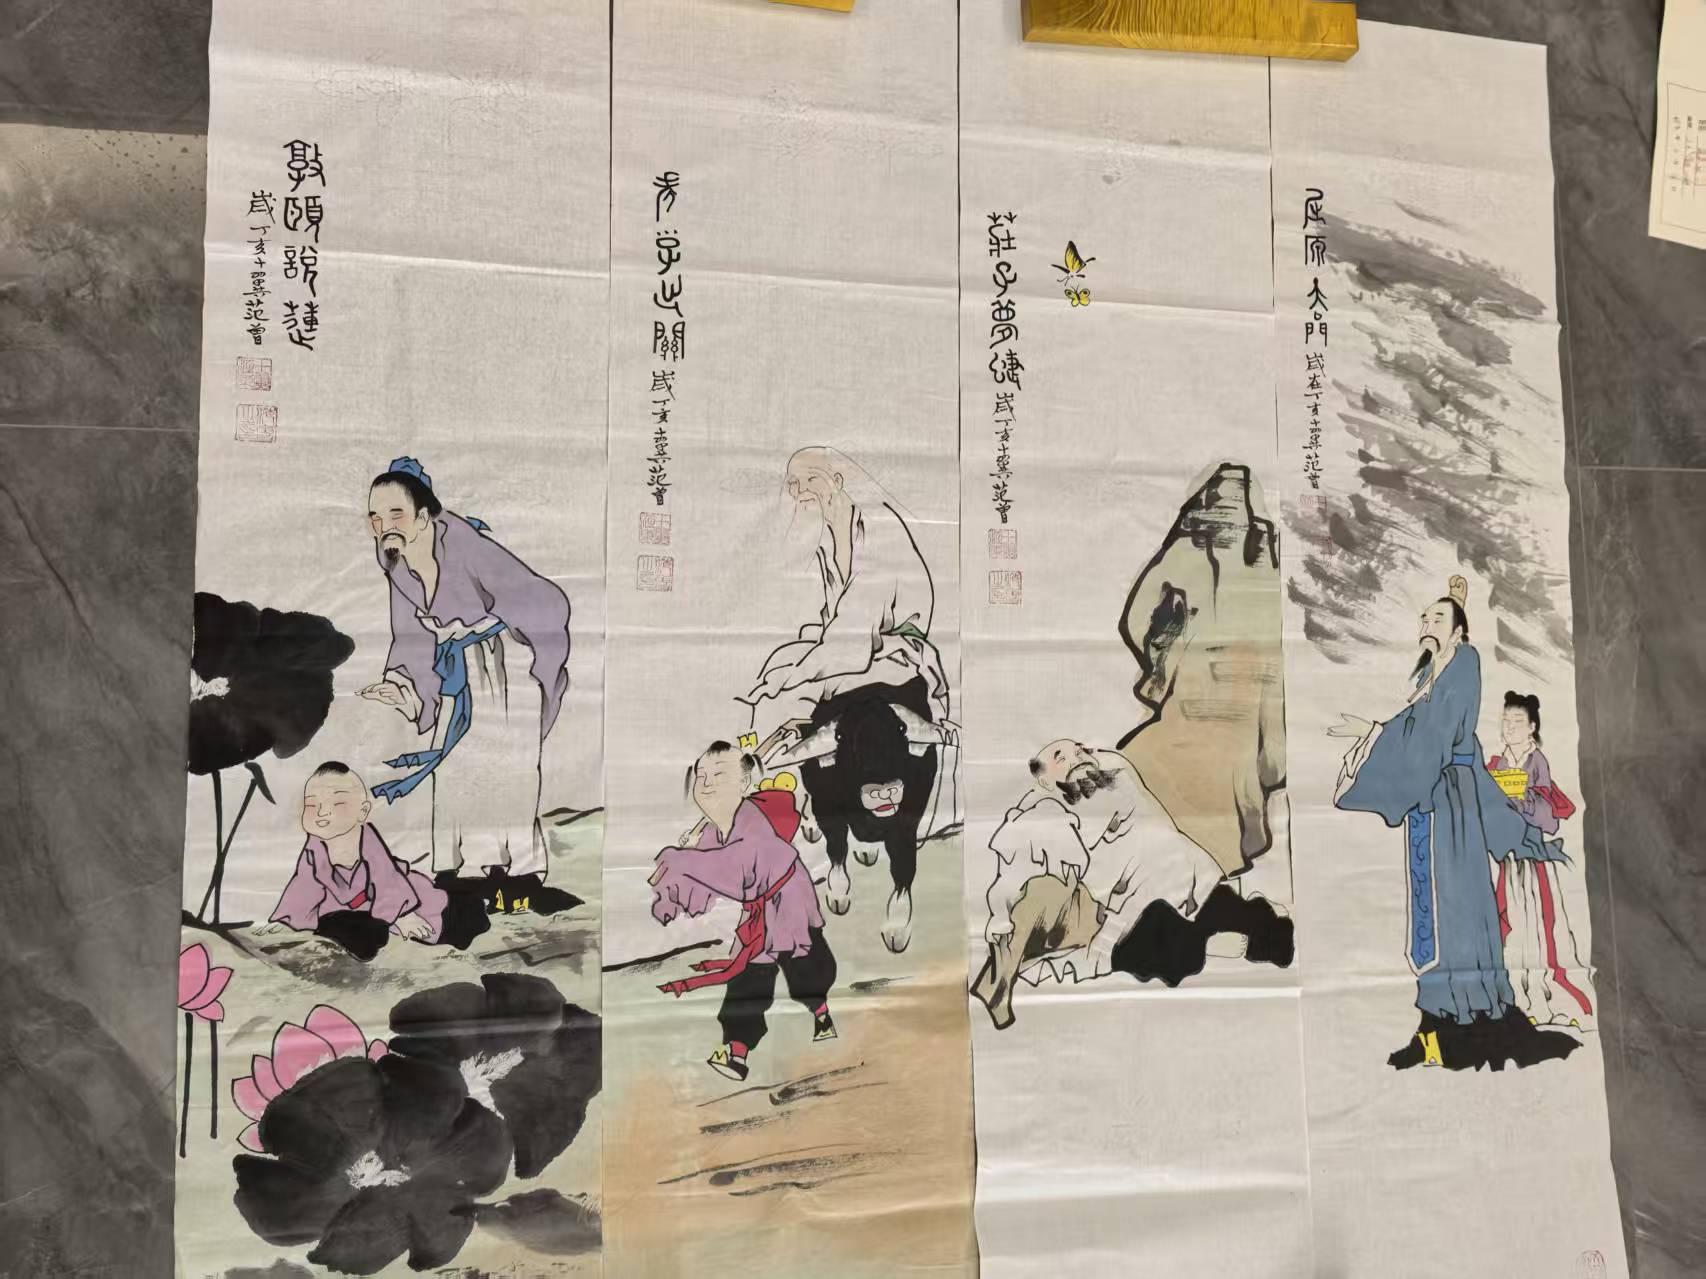 屈原天問 歲在丁亥十翼范曾
莊子夢蝶 歲丁亥十翼范曾
老子出關 歲丁亥十翼范曾
敦頤說蓮
歲丁亥十翼范曾